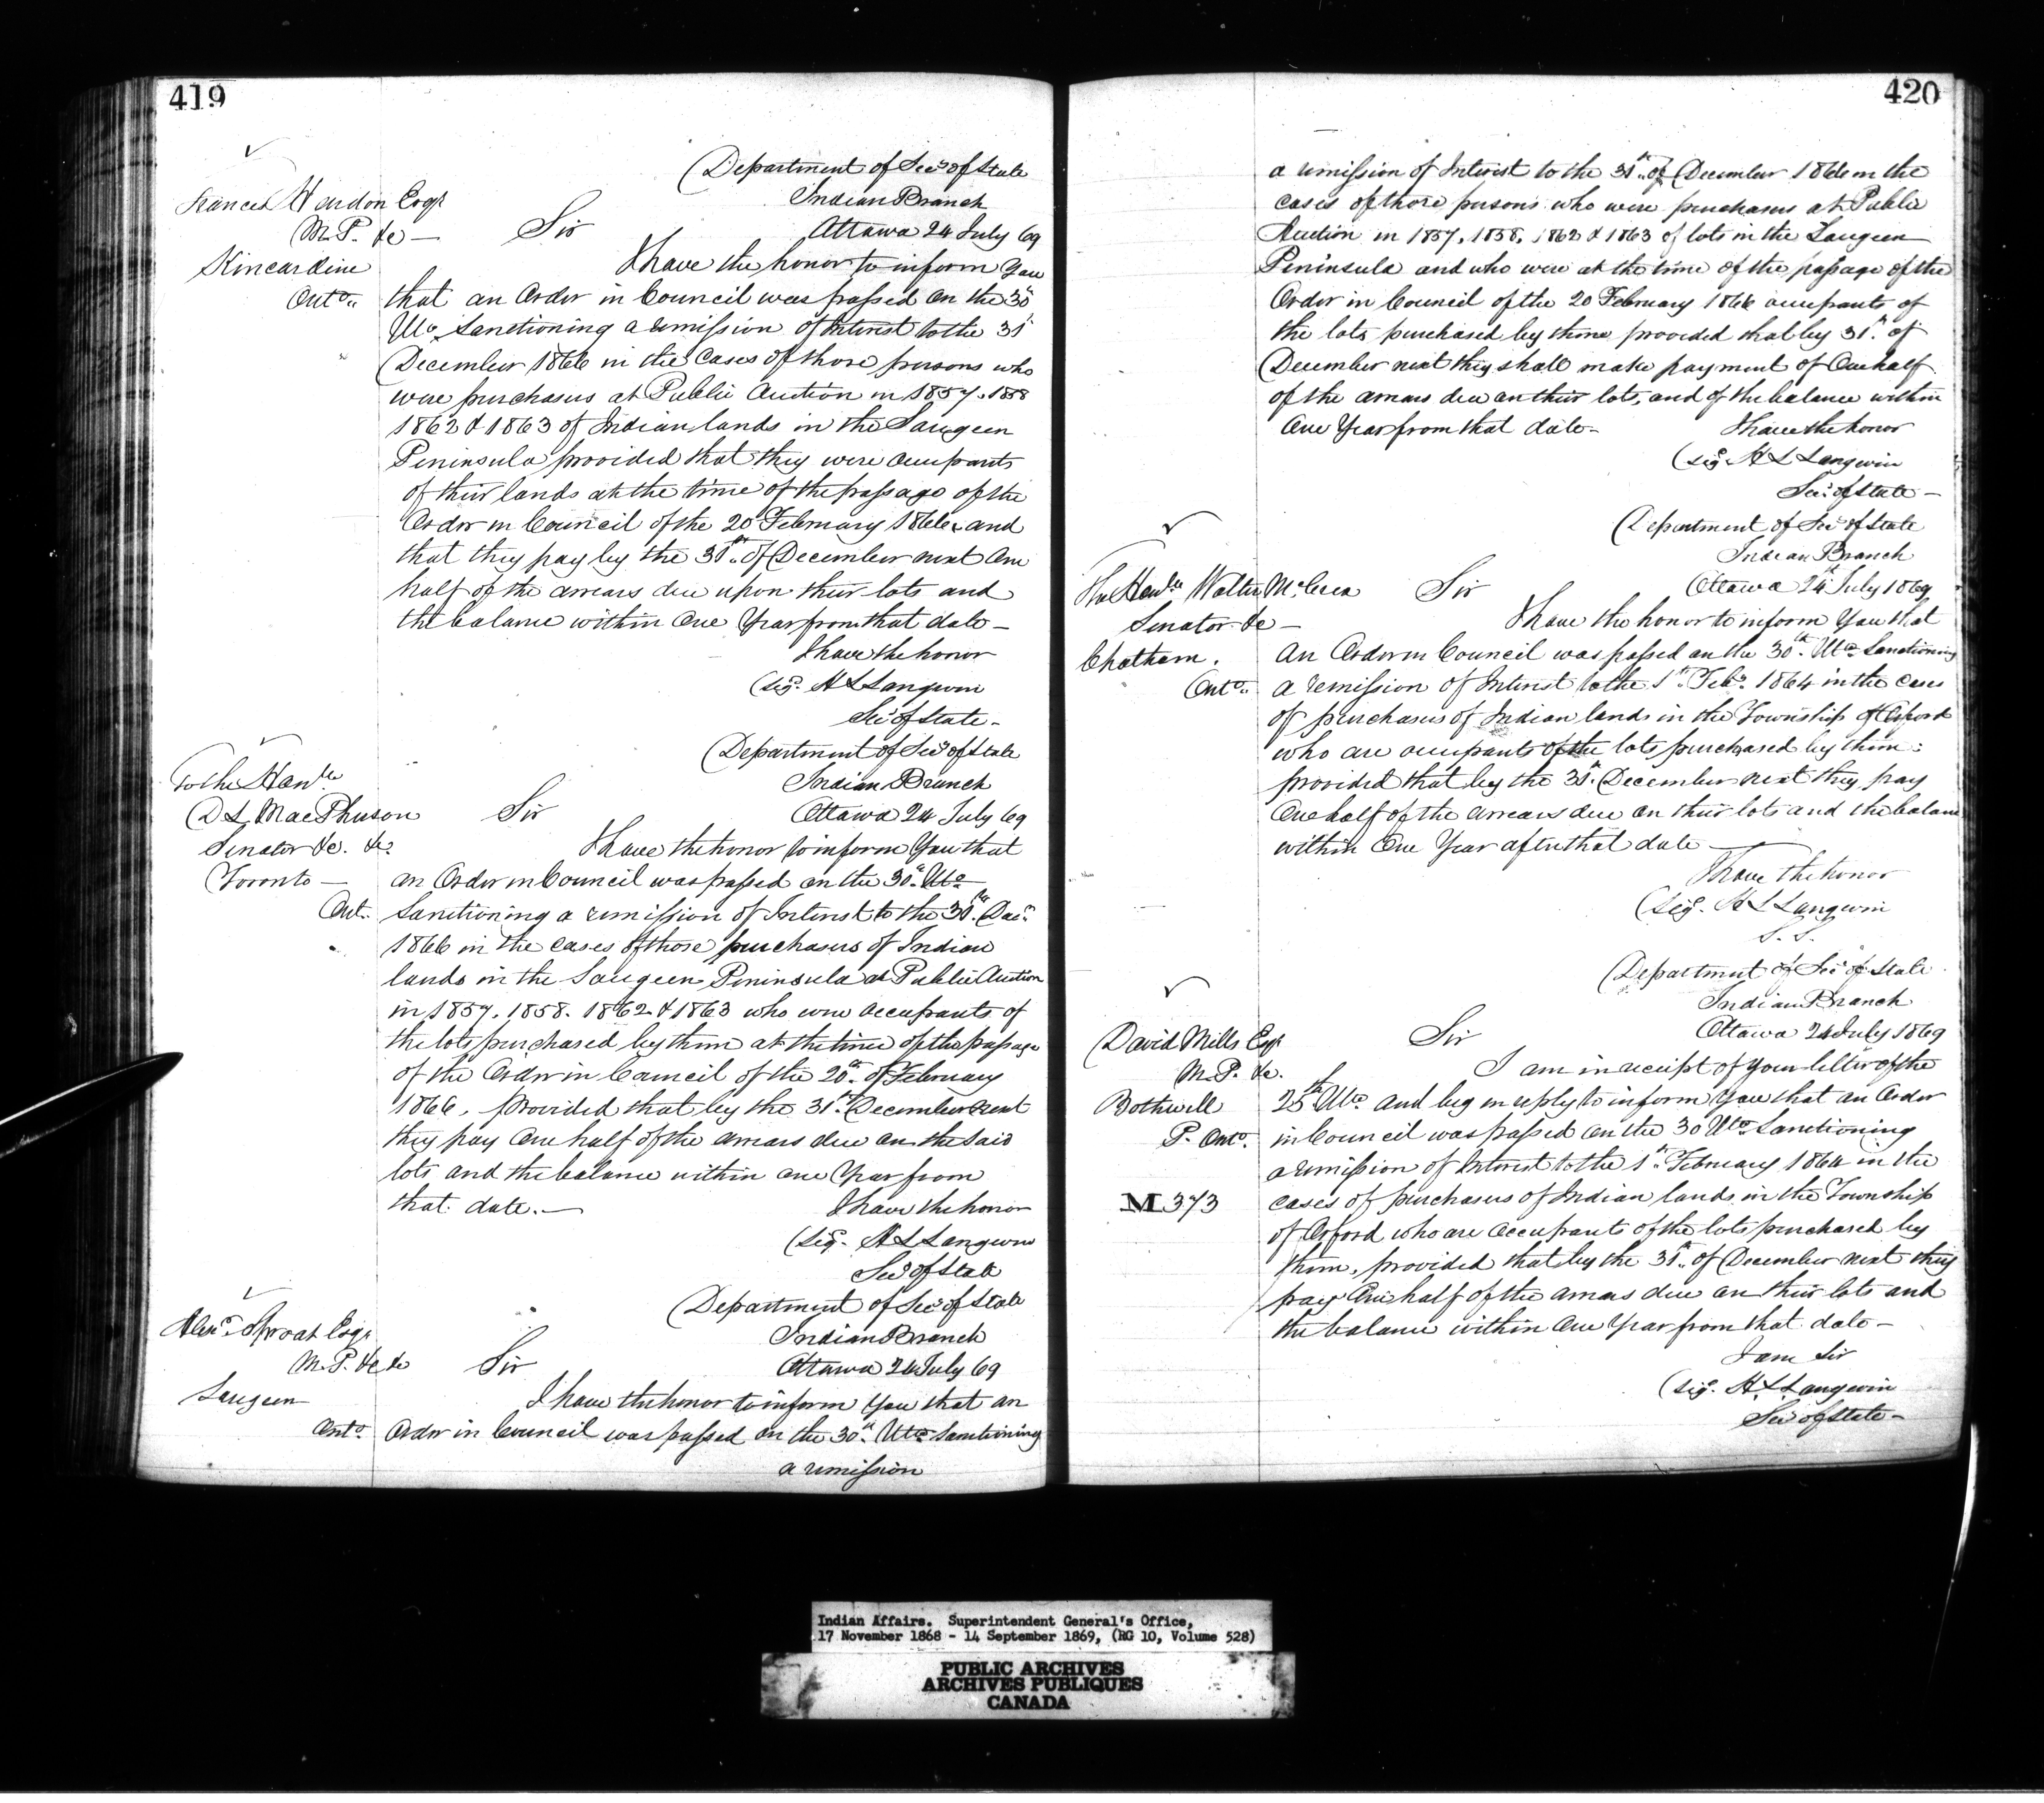 419
Department of Secy of State
Indian Branch
Ottawa 24 July 69
Frances Hurdon Esqr
M.P. &c —
Kincardine
Onto.
Sir
I have the honor to inform You
that an Order in Council was passed on the 30th
Ulto. Sanctioning a remission of Interest to the 31st
December 1866 in the Cases of those persons who
were purchasers at Public Auction in 1857, 1858
1862 & 1863 of Indian lands in the Saugeen
Peninsula provided that they were occupants
of their lands at the time of the passage of the
Order in Council of the 20 February 1866, and
that they pay by the 31st. of December next One
half of the arrears due upon their lots and
the balance within One Year from that date —
I have the honor
(Sigd. H L Langevin
Secy of State -
Department of Secy of State
Indian Branch
Ottawa 24 July 69
To the Honble
D L MacPherson
Senator &c. &c
Toronto —
Ont.
Sir
I have the honor to inform You that
an Order in Council was passed on the 30th. Ulto
Sanctioning a remission of Interest to the 30th. Decr
1866 in the cases of those purchasers of Indian
lands in the Saugeen Peninsula at Public Auction
in 1857, 1858. 1862 & 1863 who were occupants of
the lots purchased by them at the time of the passage
of the Order in Council of the 20th. of February
1866, provided that by the 31st. December next
they pay One half of the arrears due on the said
lots and the balance within one Year from
that date. —
I have the honor
(Sigd. H L Langevin
Secy of State
Department of Secy of State
Indian Branch
Ottawa 24 July 69
Alexr. Sproat Esqr
M.P. &c &c
Saugeen
Onto.
Sir
I have the honor to inform You that an
Order in Council was passed on the 30th. Ulto Sanctioning
a remission
420
a remission of Interest to the 31st. of December 1866 in the
cases of those persons who were purchasers at Public
Auction in 1857, 1858, 1862 & 1863 of lots in the Saugeen
Peninsula and who were at the time of the passage of the
Order in Council of the 20 February 1866 occupants of
the lots purchased by them provided that by 31st. of
December next they shall make payment of One half
of the arrears due on their lots, and of the balance within
One Year from that date -
I have the honor
(Sigd. H L Langevin
Secy of State —
Department of Secy of State
Indian Branch
Ottawa 24th July 1869
The Honble Walter McCrea
Senator &c —
Chatham.
Onto.
Sir
I have the honor to inform You that
An Order in Council was passed on the 30th. Ulto Sanctioning
a remission of Interest to the 1st. Feby. 1864 in the cases
of purchasers of Indian lands in the Township of Orford
who are occupants of the lots purchased by them:
provided that by the 31st. December next they pay
One half of the arrears due on their lots and the balance
within One Year after that date —
I have the honor
(Sigd. H L Langevin
S. S.
Department of Secy of State
Indian Branch
Ottawa 24 July 1869
David Mills Esqr
M.P. &c.
Bothwell
P. Onto.
M 373
Sir
I am in receipt of your letter of the
25th. Ulto and beg in reply to inform You that an Order
in Council was passed on the 30 Ulto Sanctioning
a remission of Interest to the 1st. February 1864 in the
cases of purchasers of Indian lands in the Township
of Orford who are occupants of the lots purchased by
them, provided that by the 31st. of December next they
pay One half of the arrears due on their lots and
the balance within One Year from that date —
I am Sir
(Sigd. H L Langevin
Secy of State —
Indian Affairs. Superintendent General's Office,
17 November 1868 - 14 September 1869, (RG 10, Volume 528)
PUBLIC ARCHIVES
ARCHIVES PUBLIQUES
CANADA